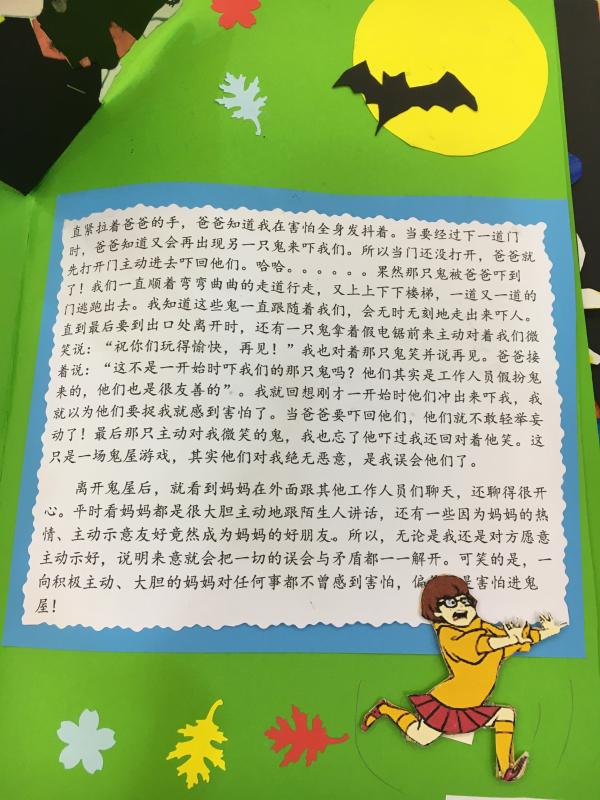 直紧拉着爸爸的手，爸爸知道我在害怕全身发抖着。当要经过下一道门
时，爸爸知道又会再出现另一只鬼来吓我们。所以当门还没打开，爸爸就
先打开门主动进去吓回他们。哈哈。。。。。。果然那只鬼被爸爸吓到
了！我们一直顺着弯弯曲曲的走道行走，又上上下下楼梯，一道又一道的
门逃跑出去。我知道这些鬼一直跟随着我们，会无时无刻地走出来吓人。
直到最后要到出口处离开时，还有一只鬼拿着假电锯前来主动对着我们微
笑说：“祝你们玩得愉快，再见！”我也对着那只鬼笑并说再见。爸爸接
着说：“这不是一开始时吓我们的那只鬼吗？他们其实是工作人员假扮鬼
来的，他们也是很友善的”。我就回想刚才一开始时他们冲出来吓我，我
就以为他们要捉我就感到害怕了。当爸爸要吓回他们，他们就不敢轻举妄
动了！最后那只主动对我微笑的鬼，我也忘了他吓过我还回对着他笑。这
只是一场鬼屋游戏，其实他们对我绝无恶意，是我误会他们了。
离开鬼屋后，就看到妈妈在外面跟其他工作人员们聊天，还聊得很开
心。平时看妈妈都是很大胆主动地跟陌生人讲话，还有一些因为妈妈的热
情、主动示意友好竟然成为妈妈的好朋友。所以，无论是我还是对方愿意
主动示好，说明来意就会把一切的误会与矛盾都一一解开。可笑的是，一
向积极主动、大胆的妈妈对任何事都不曾感到害怕，偏 是害怕进鬼
屋！